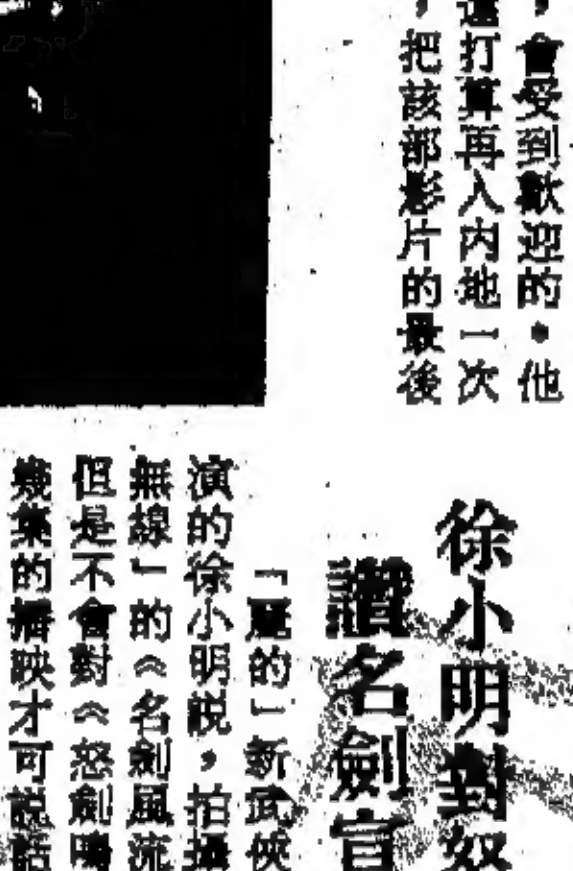 ，會受到歡迎的。他
打算再入內地一次
，把該部影片的最後
徐小明對
讚名劍
「麗的」新武俠
演的徐小明説，拍攝
無線」的《名劍風流
但是不會對《怒劍鳴
幾集的播映才可説話